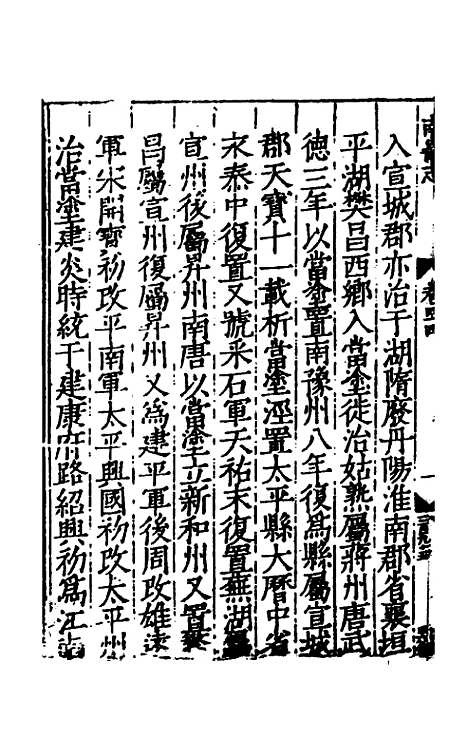 入宣城郡亦治于湖隋廢丹陽淮南郡省襄垣
平湖樊昌西鄉入當塗徙治姑熟屬蔣州唐武
德三年以當塗置南豫州八年復為縣屬宣城
郡天寶十一載析當塗涇置太平縣大曆中省
永泰中復置又號采石軍天祐末復置蕪湖屬
宣州後屬昇州南唐以當塗立新和州又置繁
昌屬宣州復屬昇州又為建平軍後周改雄遠
軍宋開寶初改平南軍太平興國初改太平州
治當塗建炎時統于建康府路紹興初為江南